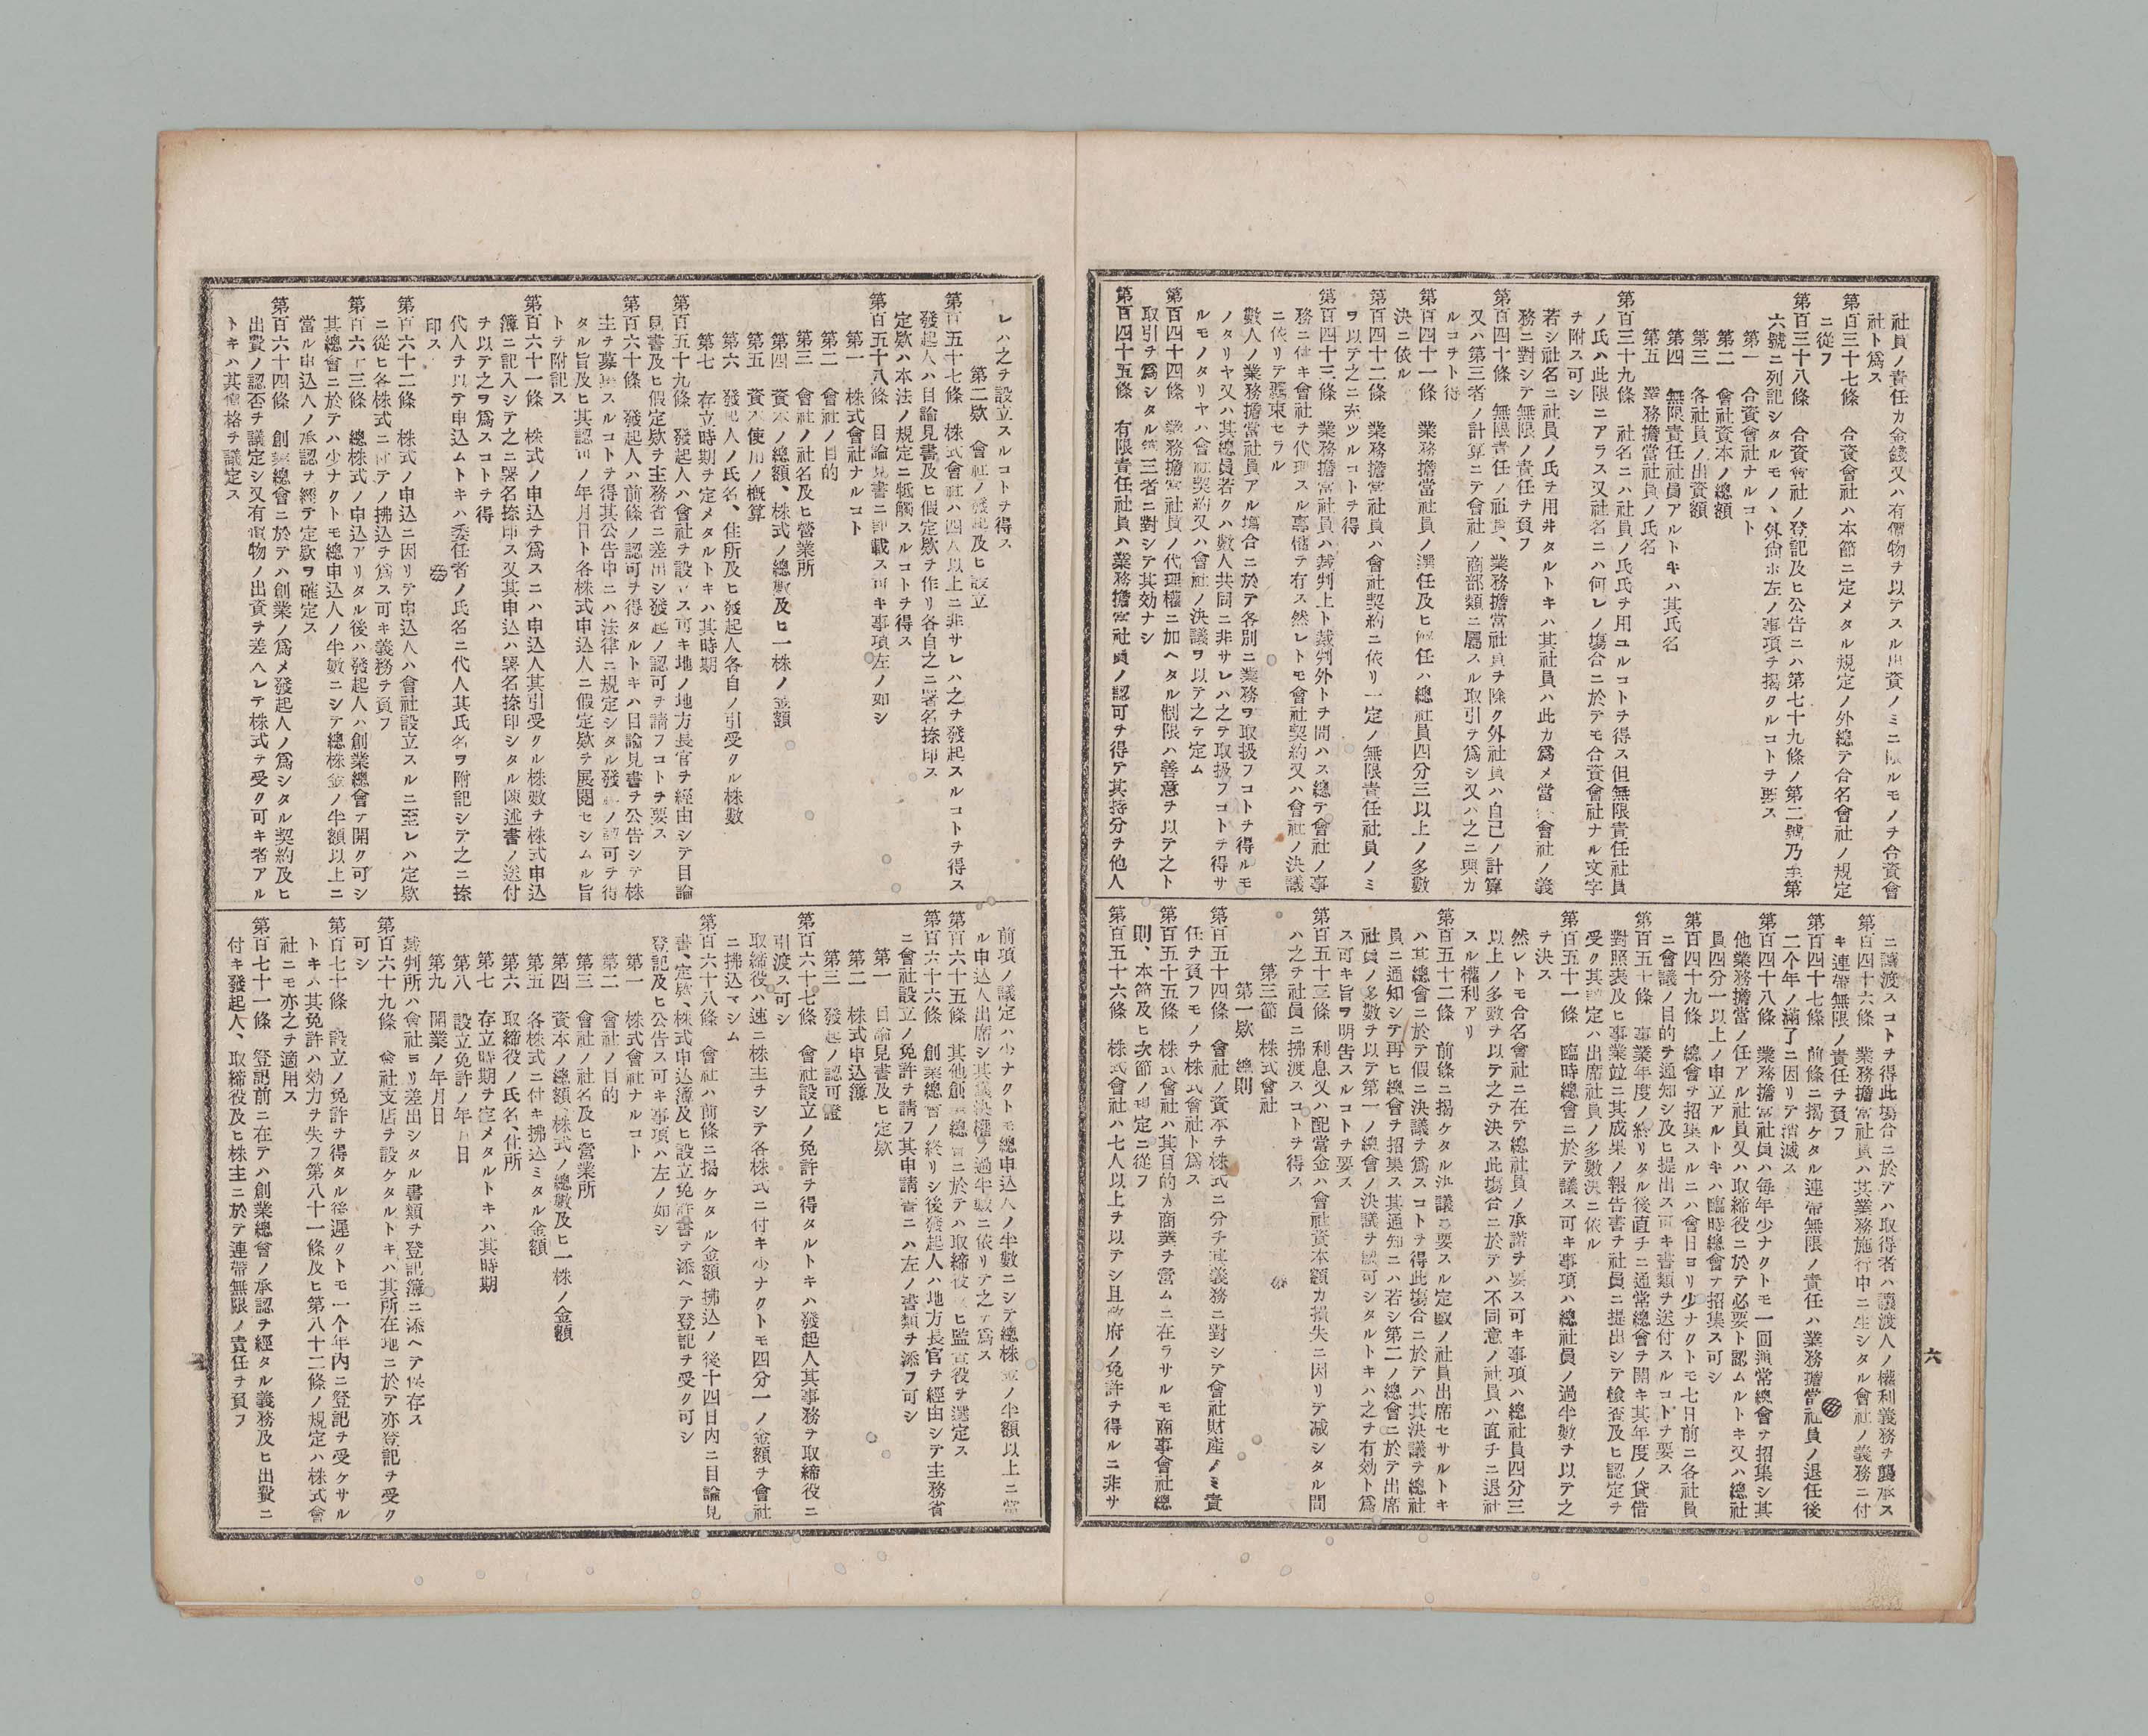 社員ノ責任カ金錢又ハ有價物ヲ以テスル出資ノミニ限ルモノヲ合資會
社ト爲ス
第百三十七條　合資會社ハ本節ニ定メタル規定ノ外總テ合名會社ノ規定
ニ從フ
第百三十八條　合資會社ノ登記及ヒ公告ニハ第七十九條ノ第二號乃至第
六號ニ列記シタルモノヽ外尙ホ左ノ事項ヲ揭クルコトヲ要ス
第一　合資會社ナルコト
第二　會社資本ノ總額
第三　各社員ノ出資額
第四　無限責任社員アルトキハ其氏名
第五　業務擔當社員ノ氏名
第百三十九條　社名ニハ社員ノ氏ヲ用ユルコトヲ得ス但無限責任社員
ノ氏ハ此限ニアラス又社名ニハ何レノ塲合ニ於テモ合資會社ナル文字
ヲ附ス可シ
若シ社名ニ社員ノ氏ヲ用井タルトキハ其社員ハ此カ爲メ當然會社ノ義
務ニ對シテ無限ノ責任ヲ負フ
第百四十條　無限責任ノ社員、業務擔當社員ヲ除ク外社員ハ自己ノ計算
又ハ第三者ノ計算ニテ會社ノ商部類ニ屬スル取引ヲ爲シ又ハ之ニ與カ
ルコヲト得
第百四十一條　業務擔當社員ノ選任及ヒ解任ハ總社員四分三以上ノ多數
決ニ依ル
第百四十二條　業務擔當社員ハ會社契約ニ依リ一定ノ無限責任社員ノミ
ヲ以テ之ニ充ツルコトヲ得
第百四十三條　業務擔當社員ハ裁判上ト裁判外トヲ問ハス總テ會社ノ事
務ニ付キ會社ヲ代理スル專權ヲ有ス然レトモ會社契約又ハ會社ノ決議
ニ依リテ羈束セラル
數人ノ業務擔當社員アル塲合ニ於テ各別ニ業務ヲ取扱フコトヲ得ルモ
ノタリヤ又ハ其總員若クハ數人共同ニ非サレハ之ヲ取扱フコトヲ得サ
ルモノタリヤハ會社契約又ハ會社ノ決議ヲ以テ之ヲ定ム
第百四十四條　業務擔當社員ノ代理權ニ加ヘタル制限ハ善意ヲ以テ之ト
取引ヲ爲シタル第三者ニ對シテ其効ナシ
第百四十五條　有限責任社員ハ業務擔當社員ノ認可ヲ得テ其持分ヲ他人
ニ讓渡スコトヲ得此塲合ニ於テハ取得者ハ讓渡人ノ權利義務ヲ襲承ス
第百四十六條　業務擔當社員ハ其業務施行中ニ生シタル會社ノ義務ニ付
キ連帶無限ノ責任ヲ負フ
第百四十七條　前條ニ揭ケタル連帶無限ノ責任ハ業務擔當社員ノ退任後
二个年ノ滿了ニ因リテ消滅ス
第百四十八條　業務擔當社員ハ每年少ナクトモ一回通常總會ヲ招集シ其
他業務擔當ノ任アル社員又ハ取締役ニ於テ必要ト認ムルトキ又ハ總社
員四分一以上ノ申立アルトキハ臨時總會ヲ招集ス可シ
第百四十九條　總會ヲ招集スルニハ會日ヨリ少ナクトモ七日前ニ各社員
ニ會議ノ目的ヲ通知シ及ヒ提出ス可キ書類ヲ送付スルコトヲ要ス
第百五十條　事業年度ノ終リタル後直チニ通常總會ヲ開キ其年度ノ貸借
對照表及ヒ事業竝ニ其成果ノ報告書ヲ社員ニ提出シテ檢査及ヒ認定ヲ
受ク其認定ハ出席社員ノ多數決ニ依ル
第百五十一條　臨時總會ニ於テ議ス可キ事項ハ總社員ノ過半數ヲ以テ之
ヲ決ス
然レトモ合名會社ニ在テ總社員ノ承諾ヲ要ス可キ事項ハ總社員四分三
以上ノ多數ヲ以テ之ヲ決ス此塲合ニ於テハ不同意ノ社員ハ直チニ退社
スル權利アリ
第百五十二條　前條ニ揭ケタル決議ニ要スル定數ノ社員出席セサルトキ
ハ其總會ニ於テ假ニ決議ヲ爲スコトヲ得此塲合ニ於テハ其決議ヲ總社
員ニ通知シテ再ヒ總會ヲ招集ス其通知ニハ若シ第二ノ總會ニ於テ出席
社員ノ多數ヲ以テ第一ノ總會ノ決議ヲ認可シタルトキハ之ヲ有効ト爲
ス可キ旨ヲ明告スルコトヲ要ス
第百五十三條　利息又ハ配當金ハ會社資本額カ損失ニ因リテ减シタル間
ハ之ヲ社員ニ拂渡スコトヲ得ス
第三節　株式會社
第一欵　總則
第百五十四條　會社ノ資本ヲ株式ニ分チ其義務ニ對シテ會社財產ノミ責
任ヲ負フモノヲ株式會社ト爲ス
第百五十五條　株式會社ハ其目的カ商業ヲ營ムニ在ラサルモ商事會社總
則、本節及ヒ次節ノ規定ニ從フ
第百五十六條　株式會社ハ七人以上ヲ以テシ且政府ノ免許ヲ得ルニ非サ
六
レハ之ヲ設立スルコトヲ得ス
第二欵　會社ノ發起及ヒ設立
第百五十七條　株式會社ハ四人以上ニ非サレハ之ヲ發起スルコトヲ得ス
發起人ハ目論見書及ヒ假定欵ヲ作リ各自之ニ署名捺印ス
定欵ハ本法ノ規定ニ牴觸スルコトヲ得ス
第百五十八條　目論見書ニ記載ス可キ事項左ノ如シ
第一　株式會社ナルコト
第二　會社ノ目的
第三　會社ノ社名及ヒ營業所
第四　資本ノ總額、株式ノ總數及ヒ一株ノ金額
第五　資本使用ノ槪算
第六　發起人ノ氏名、住所及ヒ發起人各自ノ引受クル株數
第七　存立時期ヲ定メタルトキハ其時期
第百五十九條　發起人ハ會社ヲ設立ス可キ地ノ地方長官ヲ經由シテ目論
見書及ヒ假定欵ヲ主務省ニ差出シ發起ノ認可ヲ請フコトヲ要ス
第百六十條　發起人ハ前條ノ認可ヲ得タルトキハ目論見書ヲ公告シテ株
主ヲ募集スルコトヲ得其公告中ニハ法律ニ規定シタル發起ノ認可ヲ得
タル旨及ヒ其認可ノ年月日ト各株式申込人ニ假定欵ヲ展閱セシムル旨
トヲ附記ス
第百六十一條　株式ノ申込ヲ爲スニハ申込人其引受クル株數ヲ株式申込
簿ニ記入シテ之ニ署名捺印ス又其申込ハ署名捺印シタル陳述書ノ送付
ヲ以テ之ヲ爲スコトヲ得
代人ヲ以テ申込ムトキハ委任者ノ氏名ニ代人其氏名ヲ附記シテ之ニ捺
印ス
第百六十二條　株式ノ申込ニ因リテ申込人ハ會社設立スルニ至レハ定欵
ニ從ヒ各株式ニ付テノ拂込ヲ爲ス可キ義務ヲ負フ
第百六十三條　總株式ノ申込アリタル後ハ發起人ハ創業總會ヲ開ク可シ
其總會ニ於テハ少ナクトモ總申込人ノ半數ニシテ總株金ノ半額以上ニ
當ル申込人ノ承認ヲ經テ定欵ヲ確定ス
第百六十四條　創業總會ニ於テハ創業ノ爲メ發起人ノ爲シタル契約及ヒ
出費ノ認否ヲ議定シ又有價物ノ出資ヲ差入レテ株式ヲ受ク可キ者アル
トキハ其價格ヲ議定ス
前項ノ議定ハ少ナクトモ總申込人ノ半數ニシテ總株金ノ半額以上ニ當
ル申込人出席シ其議決權ノ過半數ニ依リテ之ヲ爲ス
第百六十五條　其他創業總會ニ於テハ取締役及ヒ監査役ヲ選定ス
第百六十六條　創業總會ノ終リシ後發起人ハ地方長官ヲ經由シテ主務省
ニ會社設立ノ免許ヲ請フ其申請書ニハ左ノ書類ヲ添フ可シ
第一　目論見書及ヒ定欵
第二　株式申込簿
第三　發起ノ認可證
第百六十七條　會社設立ノ免許ヲ得タルトキハ發起人其事務ヲ取締役ニ
引渡ス可シ
取締役ハ速ニ株主ヲシテ各株式ニ付キ少ナクトモ四分一ノ金額ヲ會社
ニ拂込マシム
第百六十八條　會社ハ前條ニ揭ケタル金額拂込ノ後十四日內ニ目論見
書、定欵、株式申込簿及ヒ設立免許書ヲ添ヘテ登記ヲ受ク可シ
登記及ヒ公告ス可キ事項ハ左ノ如シ
第一　株式會社ナルコト
第二　會社ノ目的
第三　會社ノ社名及ヒ營業所
第四　資本ノ總額、株式ノ總數及ヒ一株ノ金額
第五　各株式ニ付キ拂込ミタル金額
第六　取締役ノ氏名、住所
第七　存立時期ヲ定メタルトキハ其時期
第八　設立免許ノ年月日
第九　開業ノ年月日
裁判所ハ會社ヨリ差出シタル書類ヲ登記簿ニ添ヘテ保存ス
第百六十九條　會社支店ヲ設ケタルトキハ其所在地ニ於テ亦登記ヲ受ク
可シ
第百七十條　設立ノ免許ヲ得タル後遲クトモ一个年內ニ登記ヲ受ケサル
トキハ其免許ハ効力ヲ失フ第八十一條及ヒ第八十二條ノ規定ハ株式會
社ニモ亦之ヲ適用ス
第百七十一條　登記前ニ在テハ創業總會ノ承認ヲ經タル義務及ヒ出費ニ
付キ發起人、取締役及ヒ株主ニ於テ連帶無限ノ責任ヲ負フ